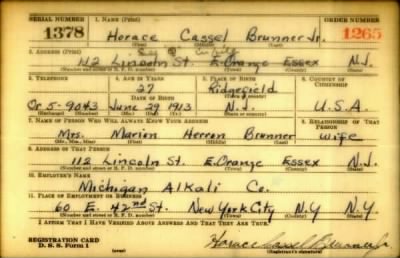 SERIAL NUMBER 1. NAME (Print) ORDER NUMBER
1378 Horace Cassel Brunner Jr. 1265
(First) (Middle) (Last)
2. ADDRESS (Print)
112 Lincoln St. E. Orange Essex N.J.
(Number and street or R. F. D. number) (Town) (County) (State)
3. TELEPHONE 4. AGE IN YEARS 5. PLACE OF BIRTH 6. COUNTRY OF CITIZENSHIP
27 Ridgefield
DATE OF BIRTH
Or 5-9043 June 29 1913 N.J. U.S.A.
(Exchange) (Number) (Mo.) (Day) (Yr.) (State or country)
7. NAME OF PERSON WHO WILL ALWAYS KNOW YOUR ADDRESS 8. RELATIONSHIP OF THAT PERSON
Mrs. Marion Herron Brunner Wife
(Mr., Mrs., Miss) (First) (Middle) (Last)
9. ADDRESS OF THAT PERSON
112 Lincoln St. E. Orange Essex N.J.
(Number and street or R. F. D. number) (Town) (County) (State)
10. EMPLOYER'S NAME
Michigan Alkali Co.
11. PLACE OF EMPLOYMENT OR BUSINESS
60 E. 42nd St. New York City N.Y. N.Y.
(Number and street or R. F. D. number) (Town) (County) (State)
I AFFIRM THAT I HAVE VERIFIED ABOVE ANSWERS AND THAT THEY ARE TRUE.
REGISTRATION CARD
D. S. S. Form 1 (over) Horace Cassel Brunner Jr.
(Registrant's signature)